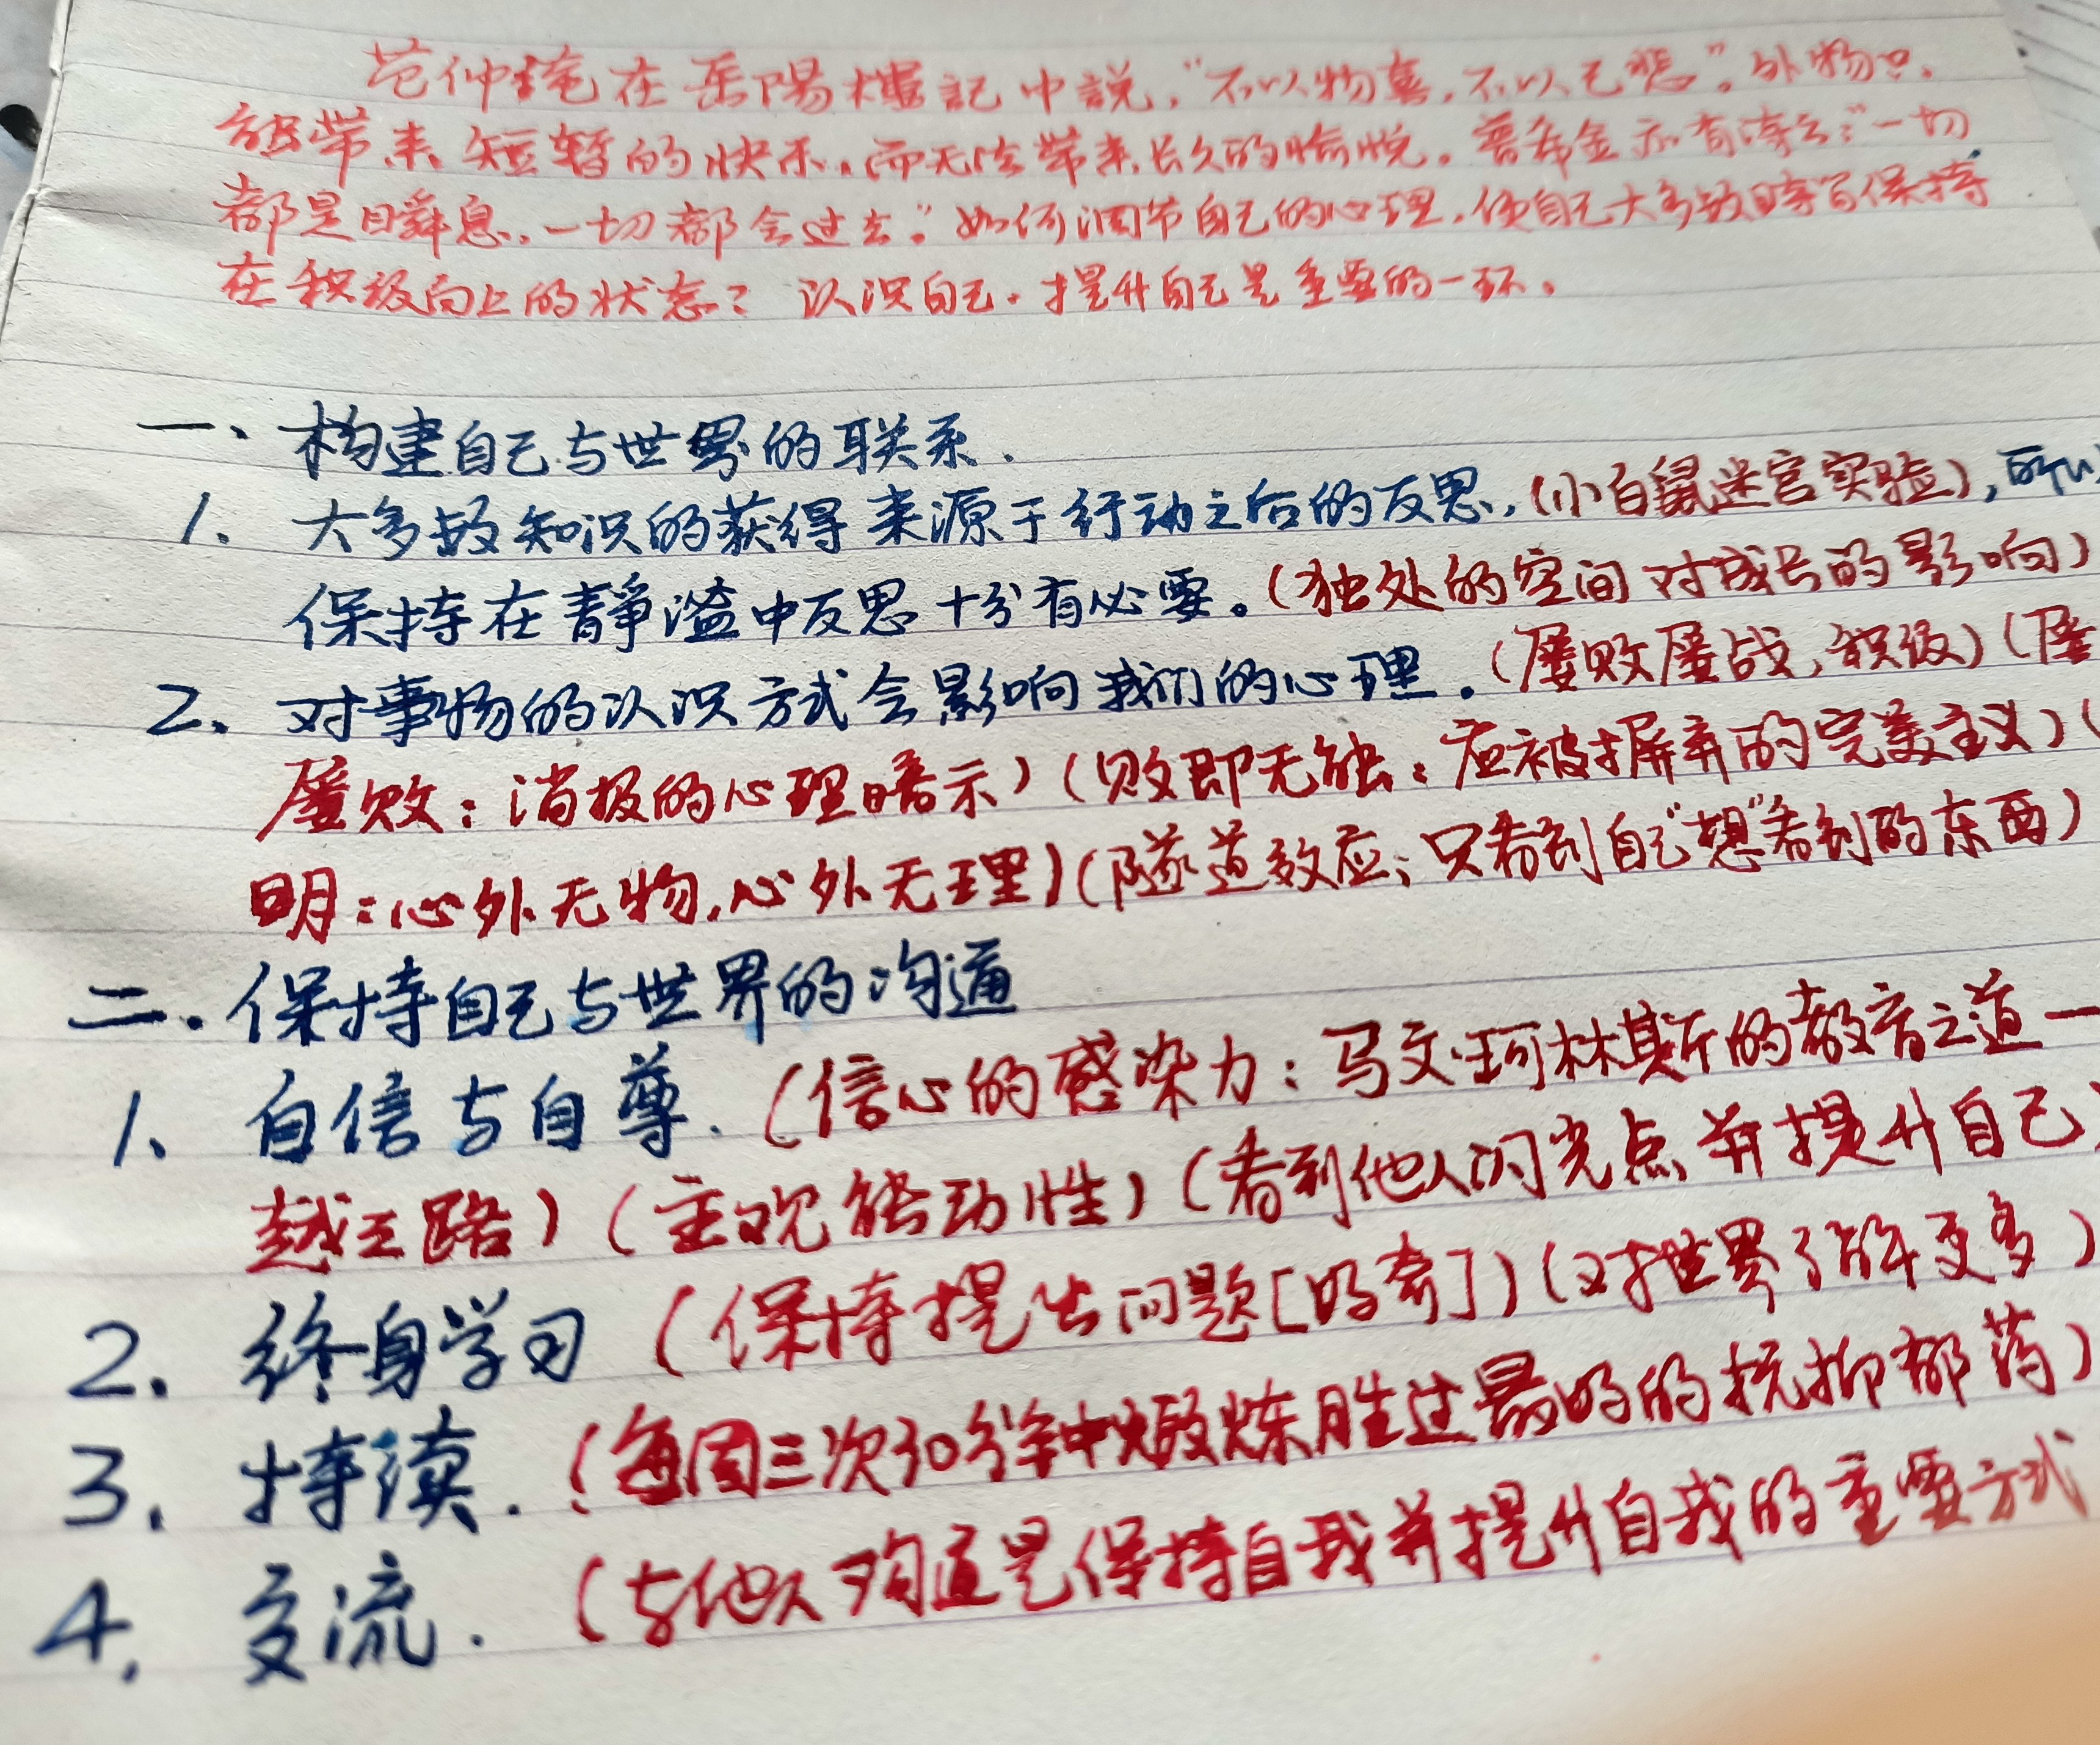 范仲淹在岳陽樓記中説，“不以物喜，不以己悲”。外物只
能带来短暂的快乐，而无法带来长久的愉悦。普希金亦有诗云：“一切
都是瞬息，一切都会过去。”如何调节自己的心理，使自己大多数时间保持
在积极向上的状态？认识自己，提升自己是重要的一环。
一、构建自己与世界的联系.
1、大多数知识的获得来源于行动之后的反思，(小白鼠迷宫实验)，所以
保持在靜溢中反思十分有必要。(独处的空间对成长的影响)
2、对事物的认识方式会影响我们的心理。(屡败屡战，积极)(屡
屡败：消极的心理暗示)(败即无能：应被摒弃的完美主义)(
明：心外无物，心外无理)(隧道效应；只看到自己“想”看到的东西)
二.保持自己与世界的沟通
1、自信与自尊.(信心的感染力：马文·珂林斯的教育之道一
越之路)(主观能动性)(看到他人闪光点并提升自己
2.终身学习(保持提出问题[好奇])(对世界了解更多)
3.持续.(每周三次30分钟中煅炼胜过最好的抗抑郁药)
4.交流.(与他人沟通是保持自我并提升自我的重要方式